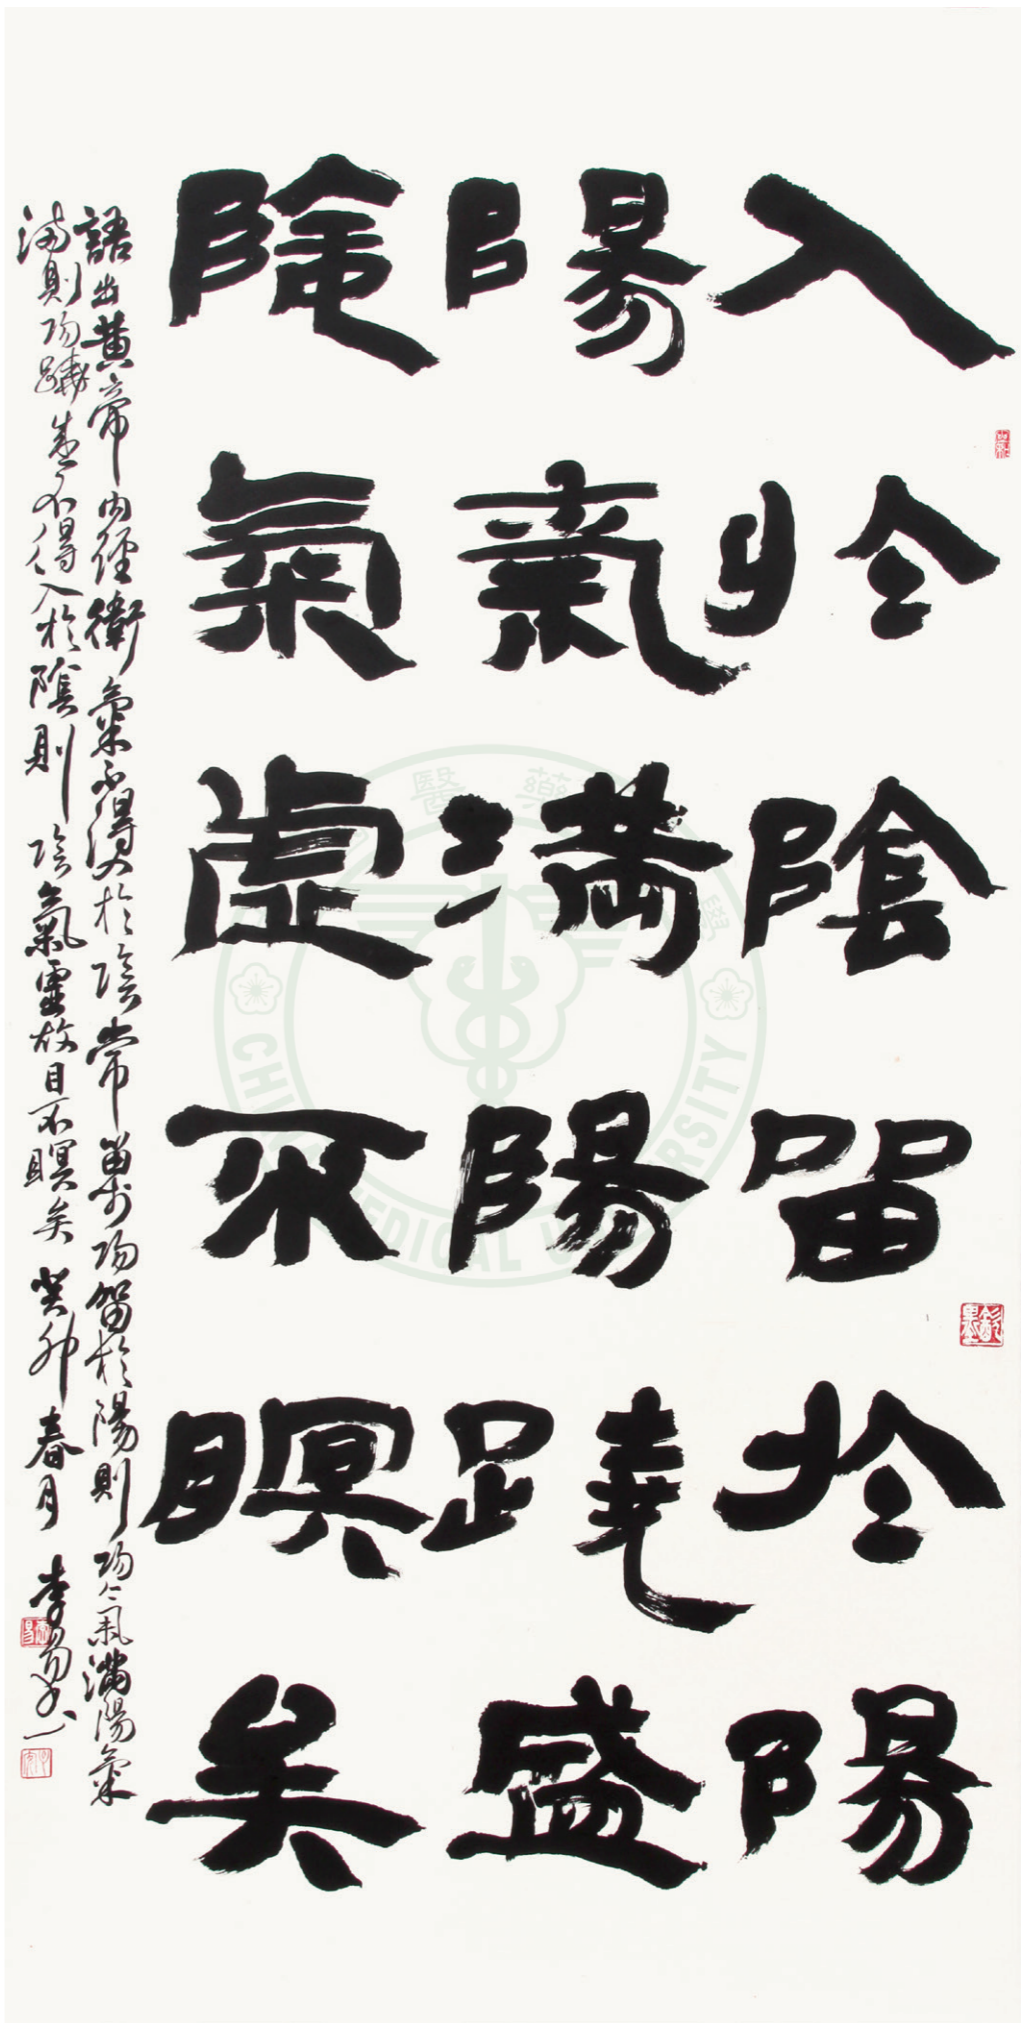 入於陰留於陽
陽氣滿陽蹺盛
陰氣虛不瞑矣
語出黃帝內經衛氣不得入於陰常留於陽留於陽則陽氣滿陽氣
滿則陽蹺盛不得入於陰則陰氣虛故目不瞑矣 癸卯春月 李
醫藥
學
CHINA MEDICAL UNIVERSITY